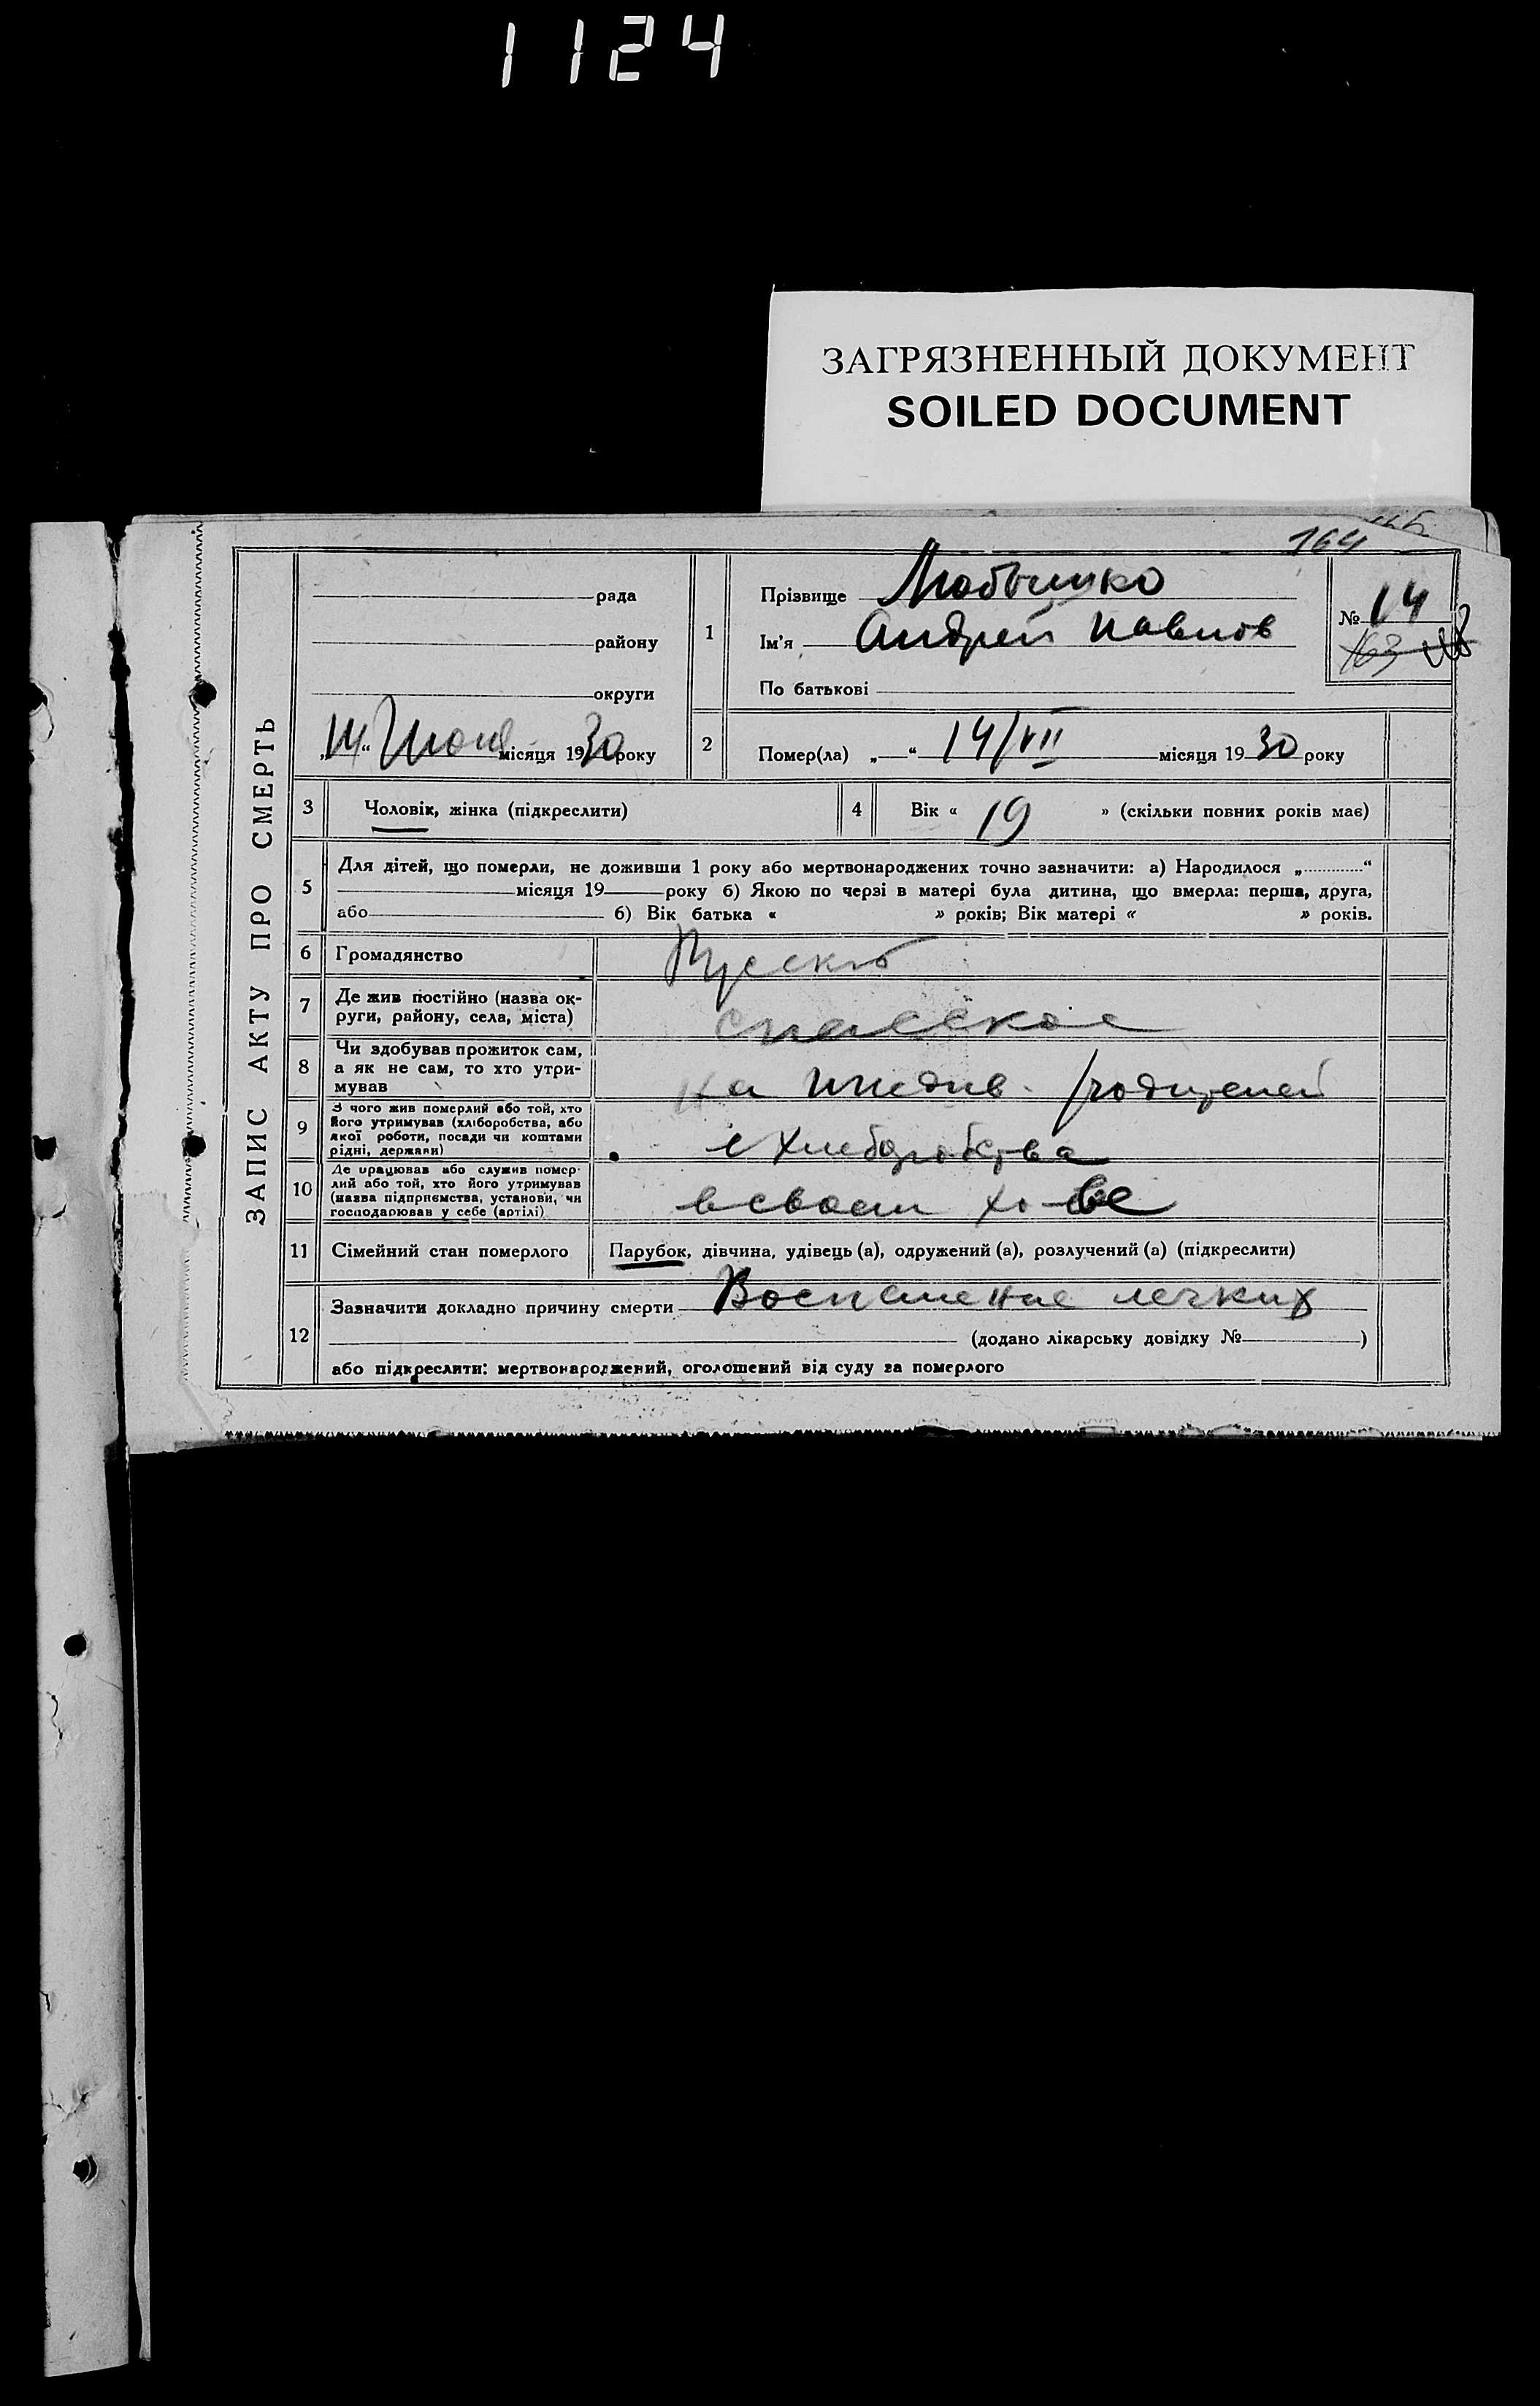 1124
ЗАГРЯЗНЕННЫЙ ДОКУМЕНТ
SOILED DOCUMENT
164
ЗАПИС АКТУ ПРО СМЕРТЬ
рада
району
округи
місяця 1930 року
1
Прізвище
Ім'я Андрей Павлов
По батькові
№ 14
163
2 Помер(ла) „—“ 14/VII місяця 1930 року
3 Чоловік, жінка (підкреслити)
4 Вік « 19 » (скільки повних років має)
5 Для дітей, що померли, не доживши 1 року або мертвонароджених точно зазначити: а) Народилося „............“
місяця 19 року б) Якою по черзі в матері була дитина, що вмерла: перша, друга,
або б) Вік батька « » років; Вік матері « » років.
6 Громадянство
7 Де жив постійно (назва ок-
руги, району, села, міста)
Спасское
8 Чи здобував прожиток сам,
а як не сам, то хто утри-
мував
на иждив. родителей
9 З чого жив померлий або той, хто
його утримував (хліборобства, або
якої роботи, посади чи коштами
рідні, держави)
10 Де працював або служив помер-
лий або той, хто його утримував
(назва підприємства, установи, чи
господарював у себе (артілі)
в своем хо-ве
11 Сімейний стан померлого
Парубок, дівчина, удівець (а), одружений (а), розлучений (а) (підкреслити)
12 Зазначити докладно причину смерти Воспаление легких
(додано лікарську довідку № )
або підкреслити: мертвонароджений, оголошений від суду за померлого